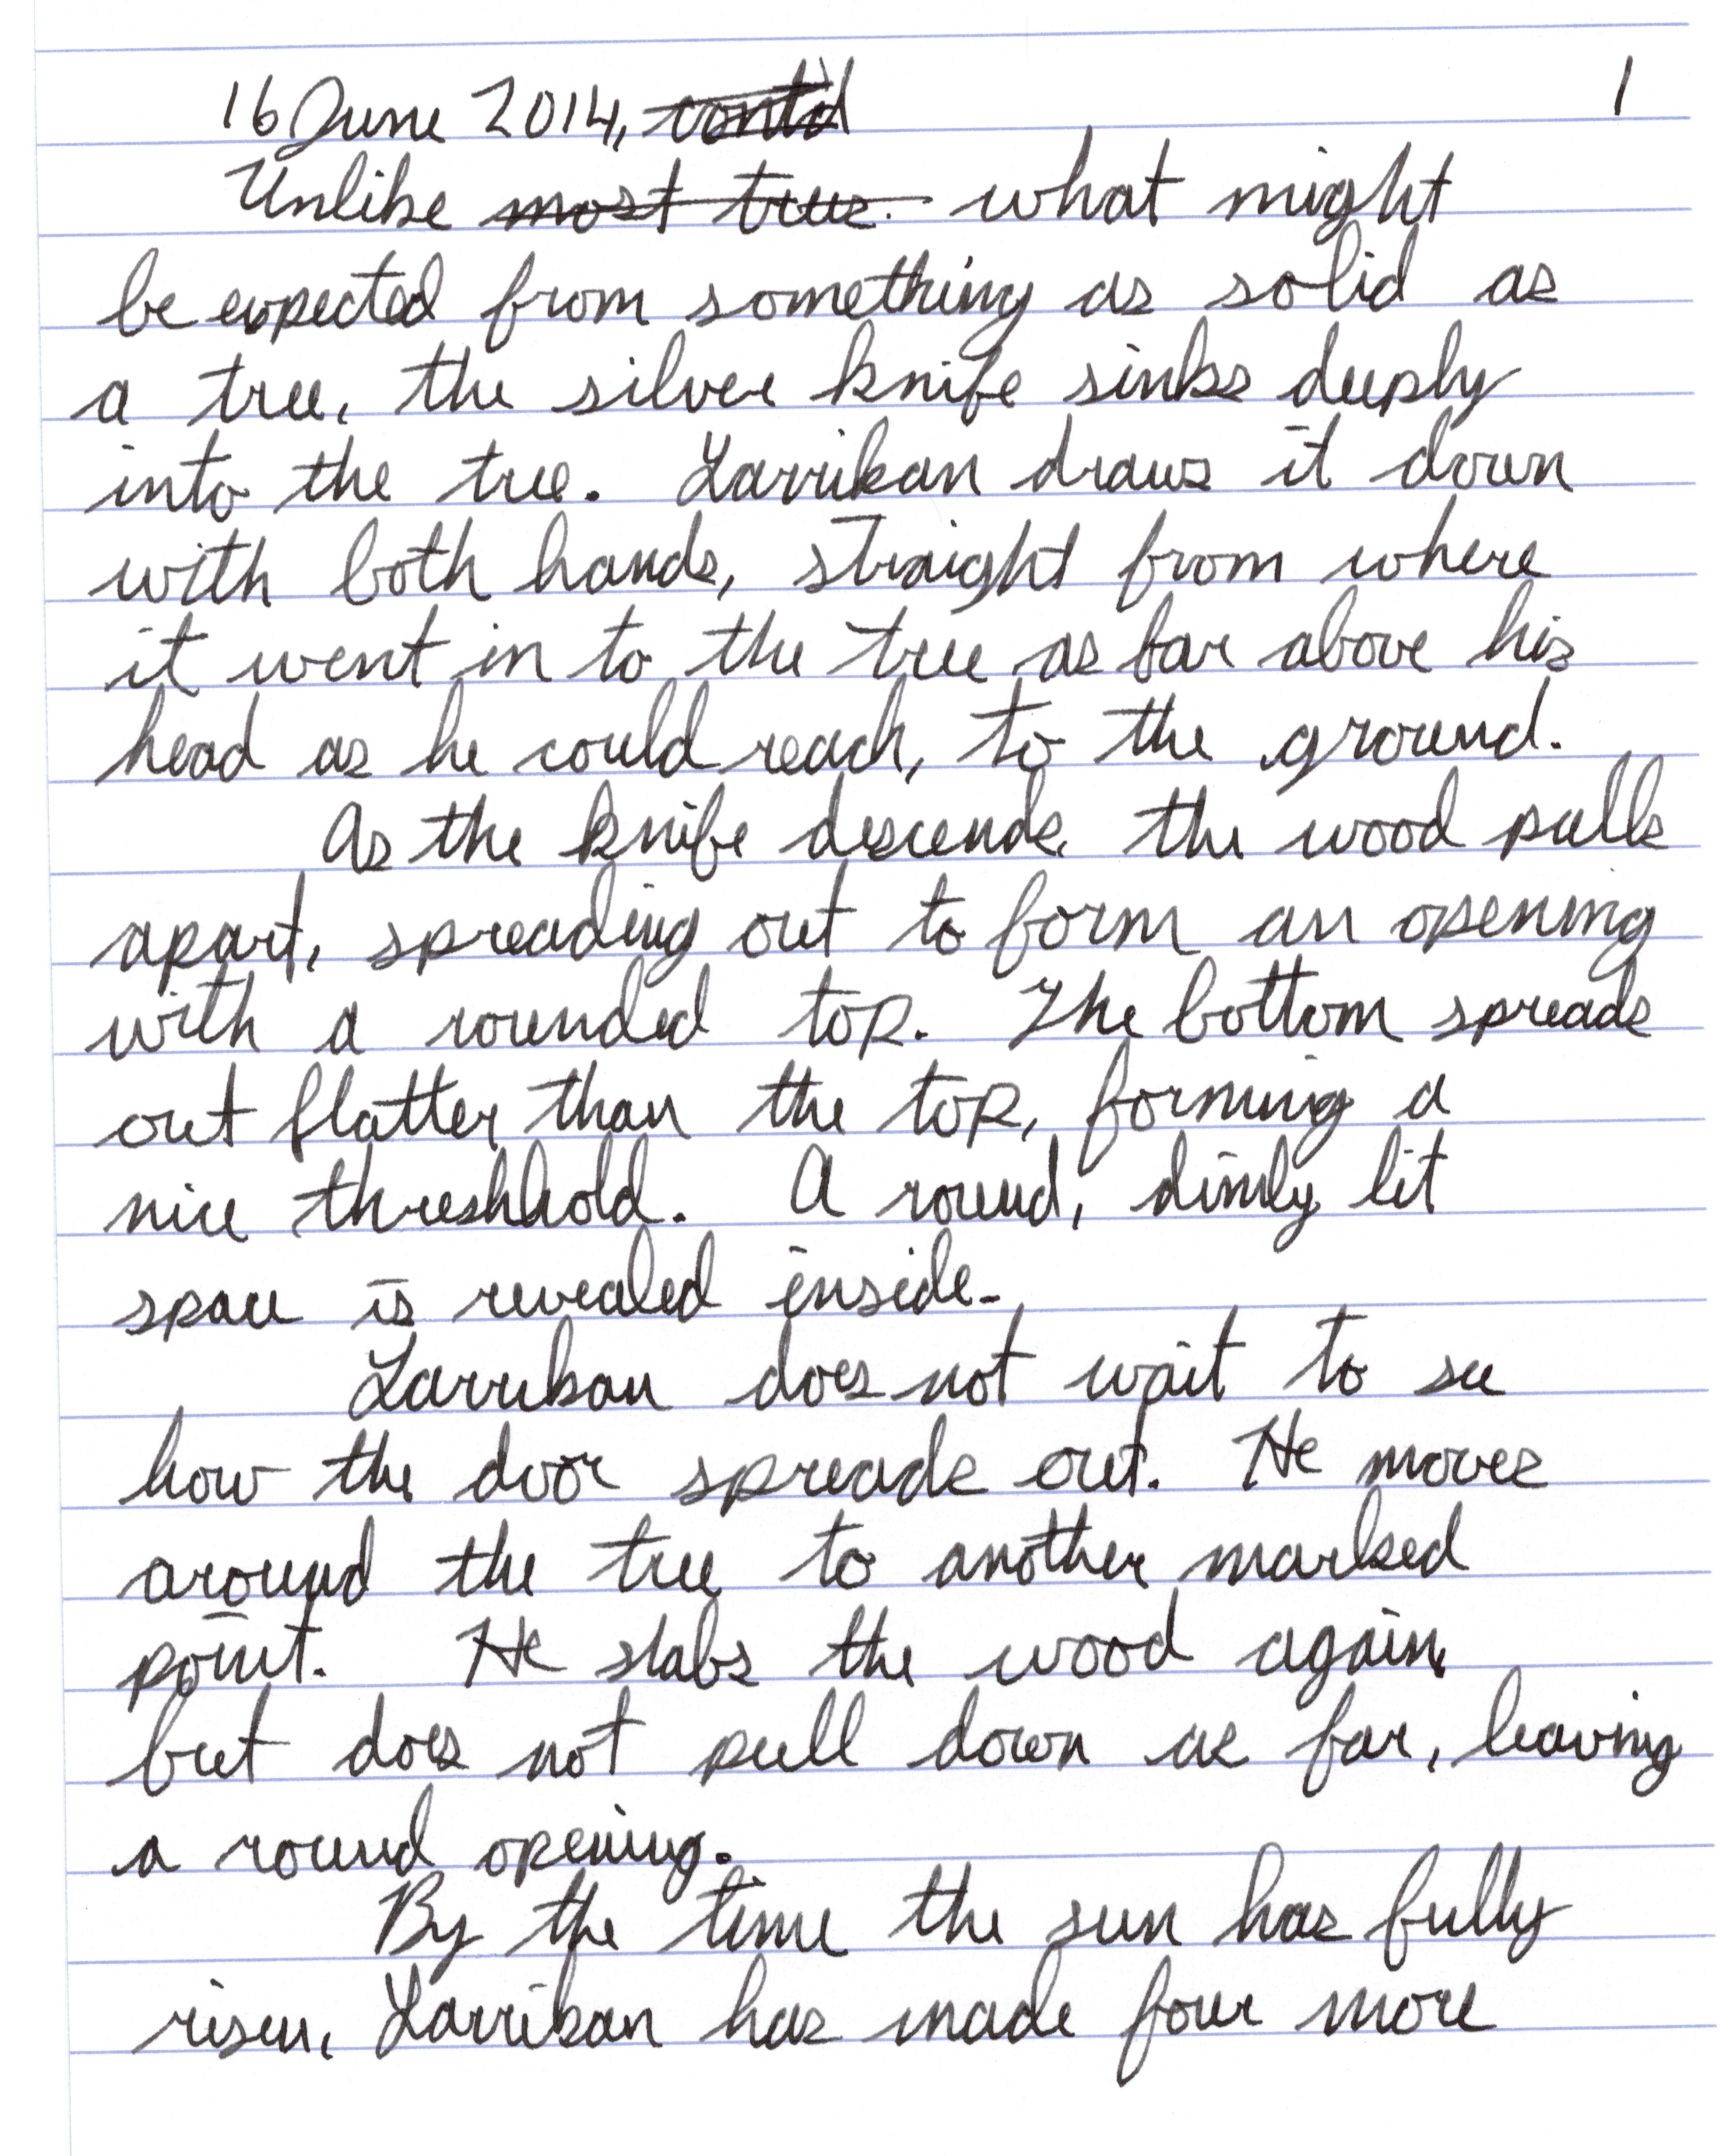 16 June 2014, cont'd 1
Unlike most trees. what might
be expected from something as solid as
a tree, the silver knife sinks deeply
into the tree. Larrikan draws it down
with both hands, straight from where
it went in to the tree as far above his
head as he could reach, to the ground.
As the knife descends, the wood pulls
apart, spreading out to form an opening
with a rounded top. The bottom spreads
out flatter than the top, forming a
nice threshhold. A round, dimly lit
space is revealed inside.
Larrikan does not wait to see
how the door spreads out. He moves
around the tree to another marked
point. He stabs the wood again,
but does not pull down as far, leaving
a round opening.
By the time the sun has fully
risen, Larrikan has made four more